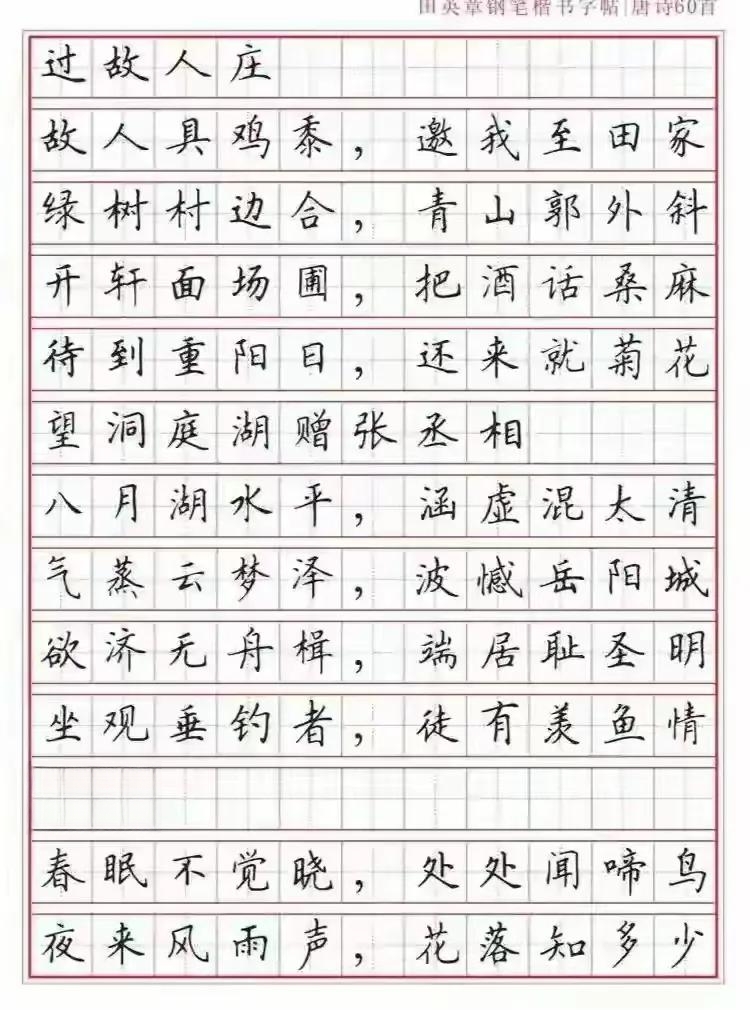 田英章钢笔楷书字帖|唐诗60首
过故人庄
故人具鸡黍，邀我至田家
绿树村边合，青山郭外斜
开轩面场圃，把酒话桑麻
待到重阳日，还来就菊花
望洞庭湖赠张丞相
八月湖水平，涵虚混太清
气蒸云梦泽，波憾岳阳城
欲济无舟楫，端居耻圣明
坐观垂钓者，徒有羡鱼情
春眠不觉晓，处处闻啼鸟
夜来风雨声，花落知多少